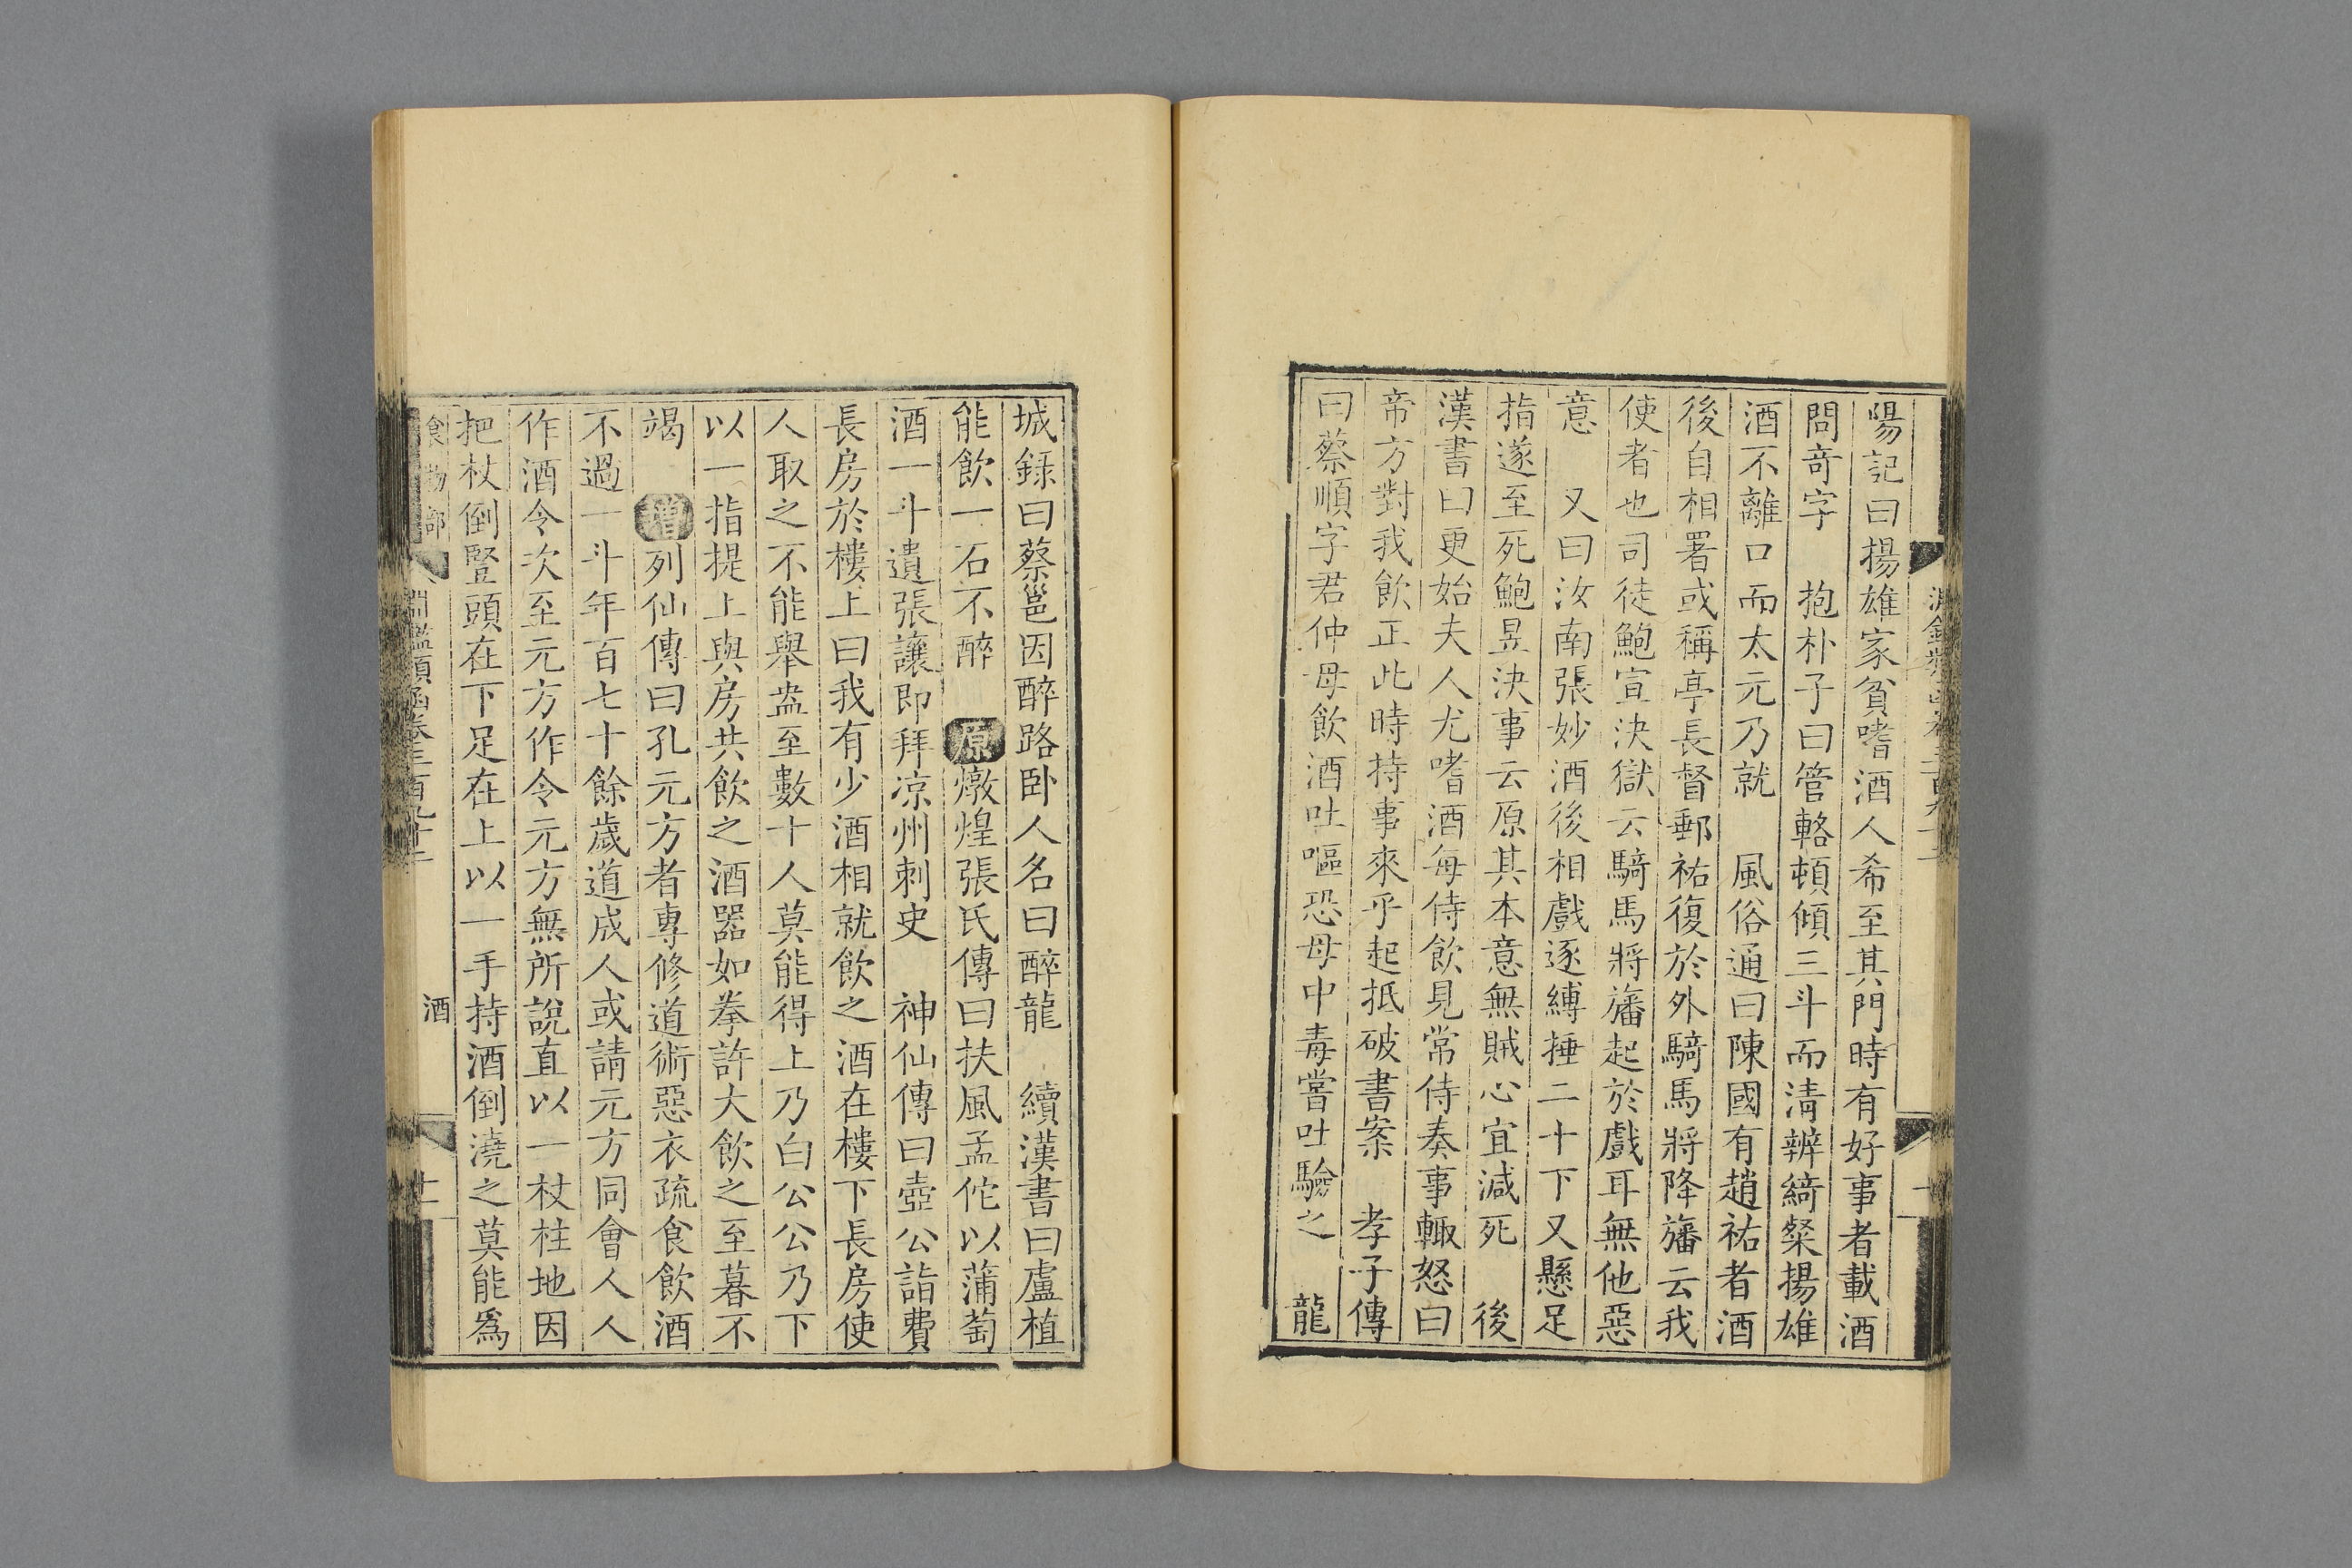 陽記曰揚雄家貧嗜酒人希至其門時有好事者載酒
問奇字　抱朴子曰管輅頓傾三斗而淸辨綺粲揚雄
酒不離口而太元乃就　風俗通曰陳國有趙祐者酒
後自相署或稱亭長督郵祐復於外騎馬將降旛云我
使者也司徒鮑宣決獄云騎馬將旛起於戲耳無他惡
意　又曰汝南張妙酒後相戲逐縛捶二十下又懸足
指遂至死鮑昱決事云原其本意無賊心宜減死　後
漢書曰更始夫人尤嗜酒每侍飲見常侍奏事輙怒曰
帝方對我飲正此時持事來乎起抵破書案　孝子傳
曰蔡順字君仲母飲酒吐嘔恐母中毒嘗吐驗之　龍
城録曰蔡邕因醉路卧人名曰醉龍　續漢書曰盧植
能飲一石不醉　原燉煌張氏傳曰扶風孟佗以蒲萄
酒一斗遺張讓即拜凉州刺史　神仙傳曰壺公詣費
長房於樓上曰我有少酒相就飲之酒在樓下長房使
人取之不能舉盎至數十人莫能得上乃白公公乃下
以一指提上與房共飲之酒器如拳許大飲之至暮不
竭　增列仙傳曰孔元方者專修道術惡衣疏食飲酒
不過一斗年百七十餘歲道成人或請元方同會人人
作酒令次至元方作令元方無所說直以一杖柱地因
把杖倒豎頭在下足在上以一手持酒倒澆之莫能爲
食物部　淵鑑類函卷三百九十二　酒　十一